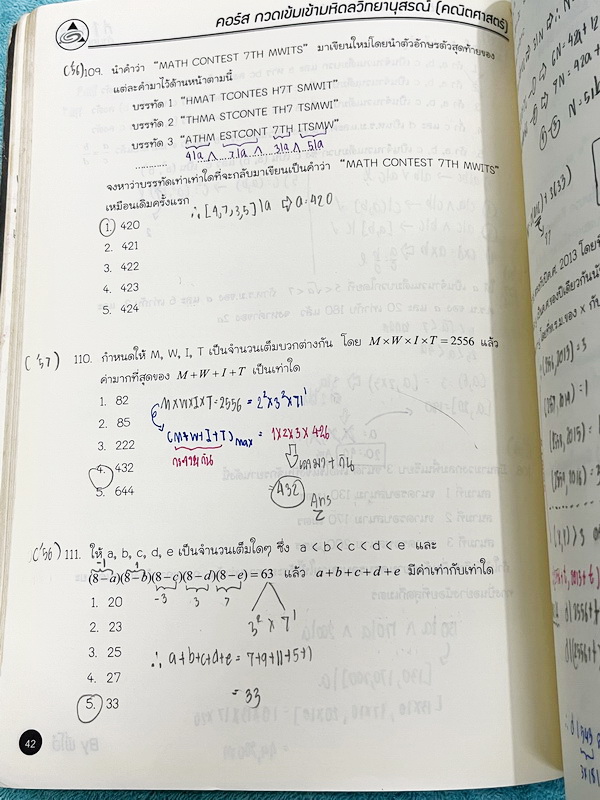 คอร์ส กวดเข้มเข้ามหิดลวิทยานุสรณ์ (คณิตศาสตร์)
('56) 109. นำคำว่า "MATH CONTEST 7TH MWITS" มาเขียนใหม่โดยนำตัวอักษรตัวสุดท้ายของ
แต่ละคำมาไว้ด้านหน้าตามนี้
บรรทัด 1 "HMAT TCONTES H7T SMWIT"
บรรทัด 2 "THMA STCONTE TH7 TSMWI"
บรรทัด 3 "ATHM ESTCONT 7TH ITSMW"
...........
4|a ∧ 7|a ∧ 3|a ∧ 5|a
จงหาว่าบรรทัดเท่าเท่าใดที่จะกลับมาเขียนเป็นคำว่า "MATH CONTEST 7TH MWITS"
เหมือนเดิมครั้งแรก
∴ [4,7,3,5]|a ⇨ a=420
1. 420
2. 421
3. 422
4. 423
5. 424
('57) 110. กำหนดให้ M, W, I, T เป็นจำนวนเต็มบวกต่างกัน โดย M×W×I×T = 2556 แล้ว
ค่ามากที่สุดของ M+W+I+T เป็นเท่าใด
1. 82
2. 85
3. 222
4. 432
5. 644
M×W×I×T=2556 = 2²×3²×71¹
(M+W+I+T)max = 1×2×3×426
กระจายกัน
เอามา+กัน
=432
Ans
('56) 111. ให้ a, b, c, d, e เป็นจำนวนเต็มใดๆ ซึ่ง a < b < c < d < e และ
(8−a)(8−b)(8−c)(8−d)(8−e) = 63 แล้ว a+b+c+d+e มีค่าเท่ากับเท่าใด
-1 1 -3 3 7
3² × 7¹
1. 20
2. 23
3. 25
4. 27
5. 33
∴ a+b+c+d+e = 7+9+11+5+1
= 33
42